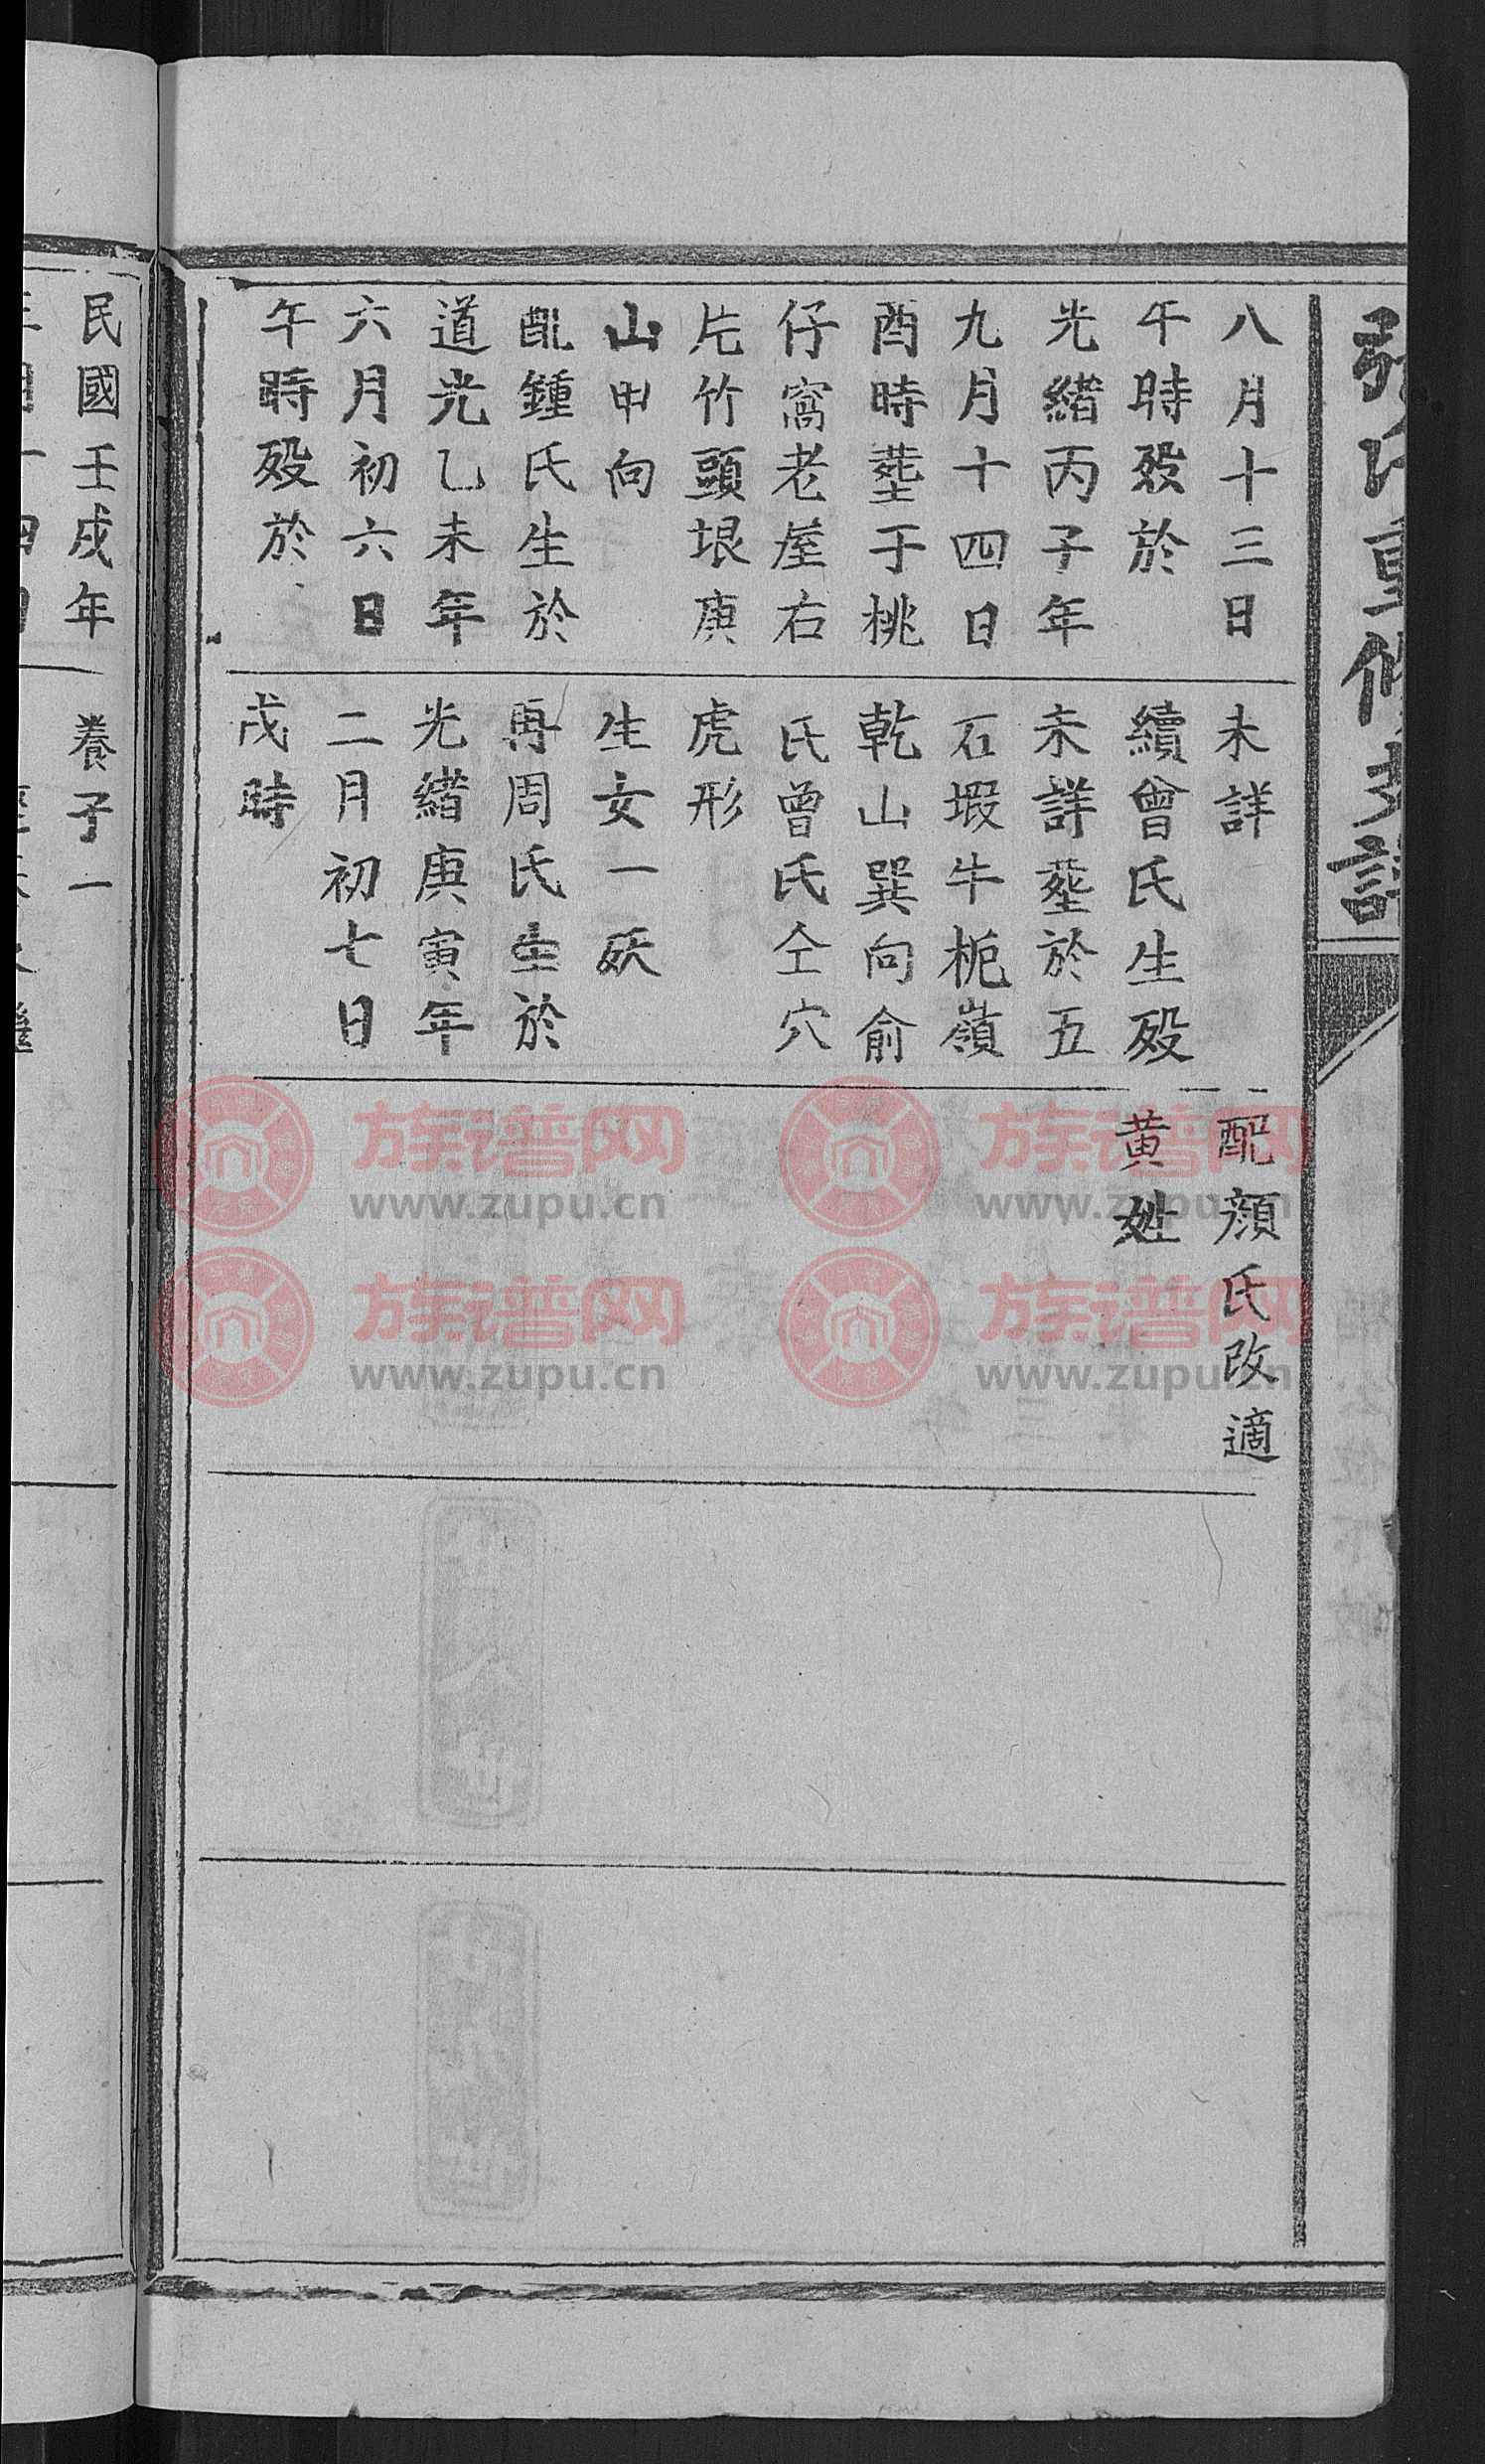 氏重修支譜
八月十三日
午時歿於
光緒丙子年
九月十四日
酉時塟于桃
仔窩老屋右
片竹頭垠庚
山甲向
配鍾氏生於
道光乙未年
六月初六日
午時歿於
未詳
續曾氏生歿
未詳塟於五
石塅牛栀嶺
乾山巽向俞
氏曾氏仝穴
虎形
生女一殀
再周氏生於
光緒庚寅年
二月初七日
戌時
配顏氏改適
黄姓
民國壬戌年
養子一
族谱网
www.zupu.cn
族谱网
www.zupu.cn
族谱网
www.zupu.cn
族谱网
www.zupu.cn